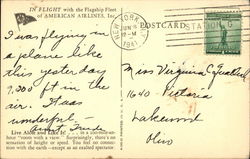 IN FLIGHT with the Flagship Fleet
of AMERICAN AIRLINES, Inc.
POSTCARD
NEW YORK, N.Y.
1941
STATION
I was flying in
a plane like
this yesterday
9,000 ft in the
air. It was
wonderful.
Miss Virginia
1640
Lakewood
Ohio
Live Aloft and Like It!
"room with a view." Surprisingly, there's no sensation of height or speed. You feel no connection with the earth—except as an exalted spectator